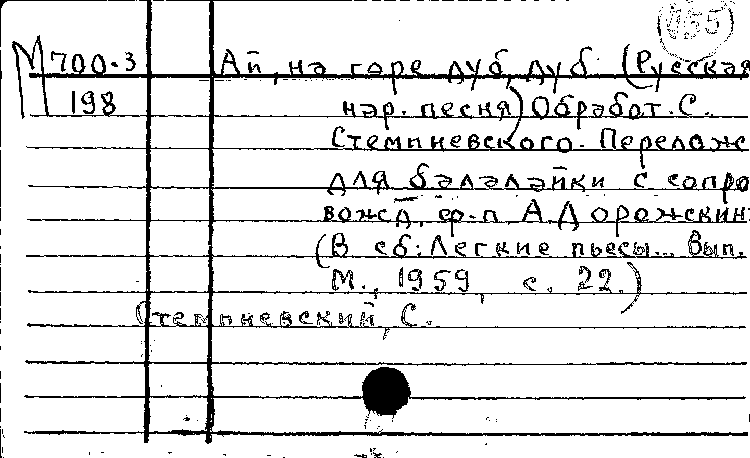 155
М 700-3 Ай, на горе дуб, дуб. (Русская
198 нар. песня) Обработ. С.
Стемпневского. Перелож
для балалайки с сопро
вожд. ф-п А. Дорожкин
(В сб: Легкие пьесы... Вып.
М., 1959, с. 22.)
Стемпневский, С.